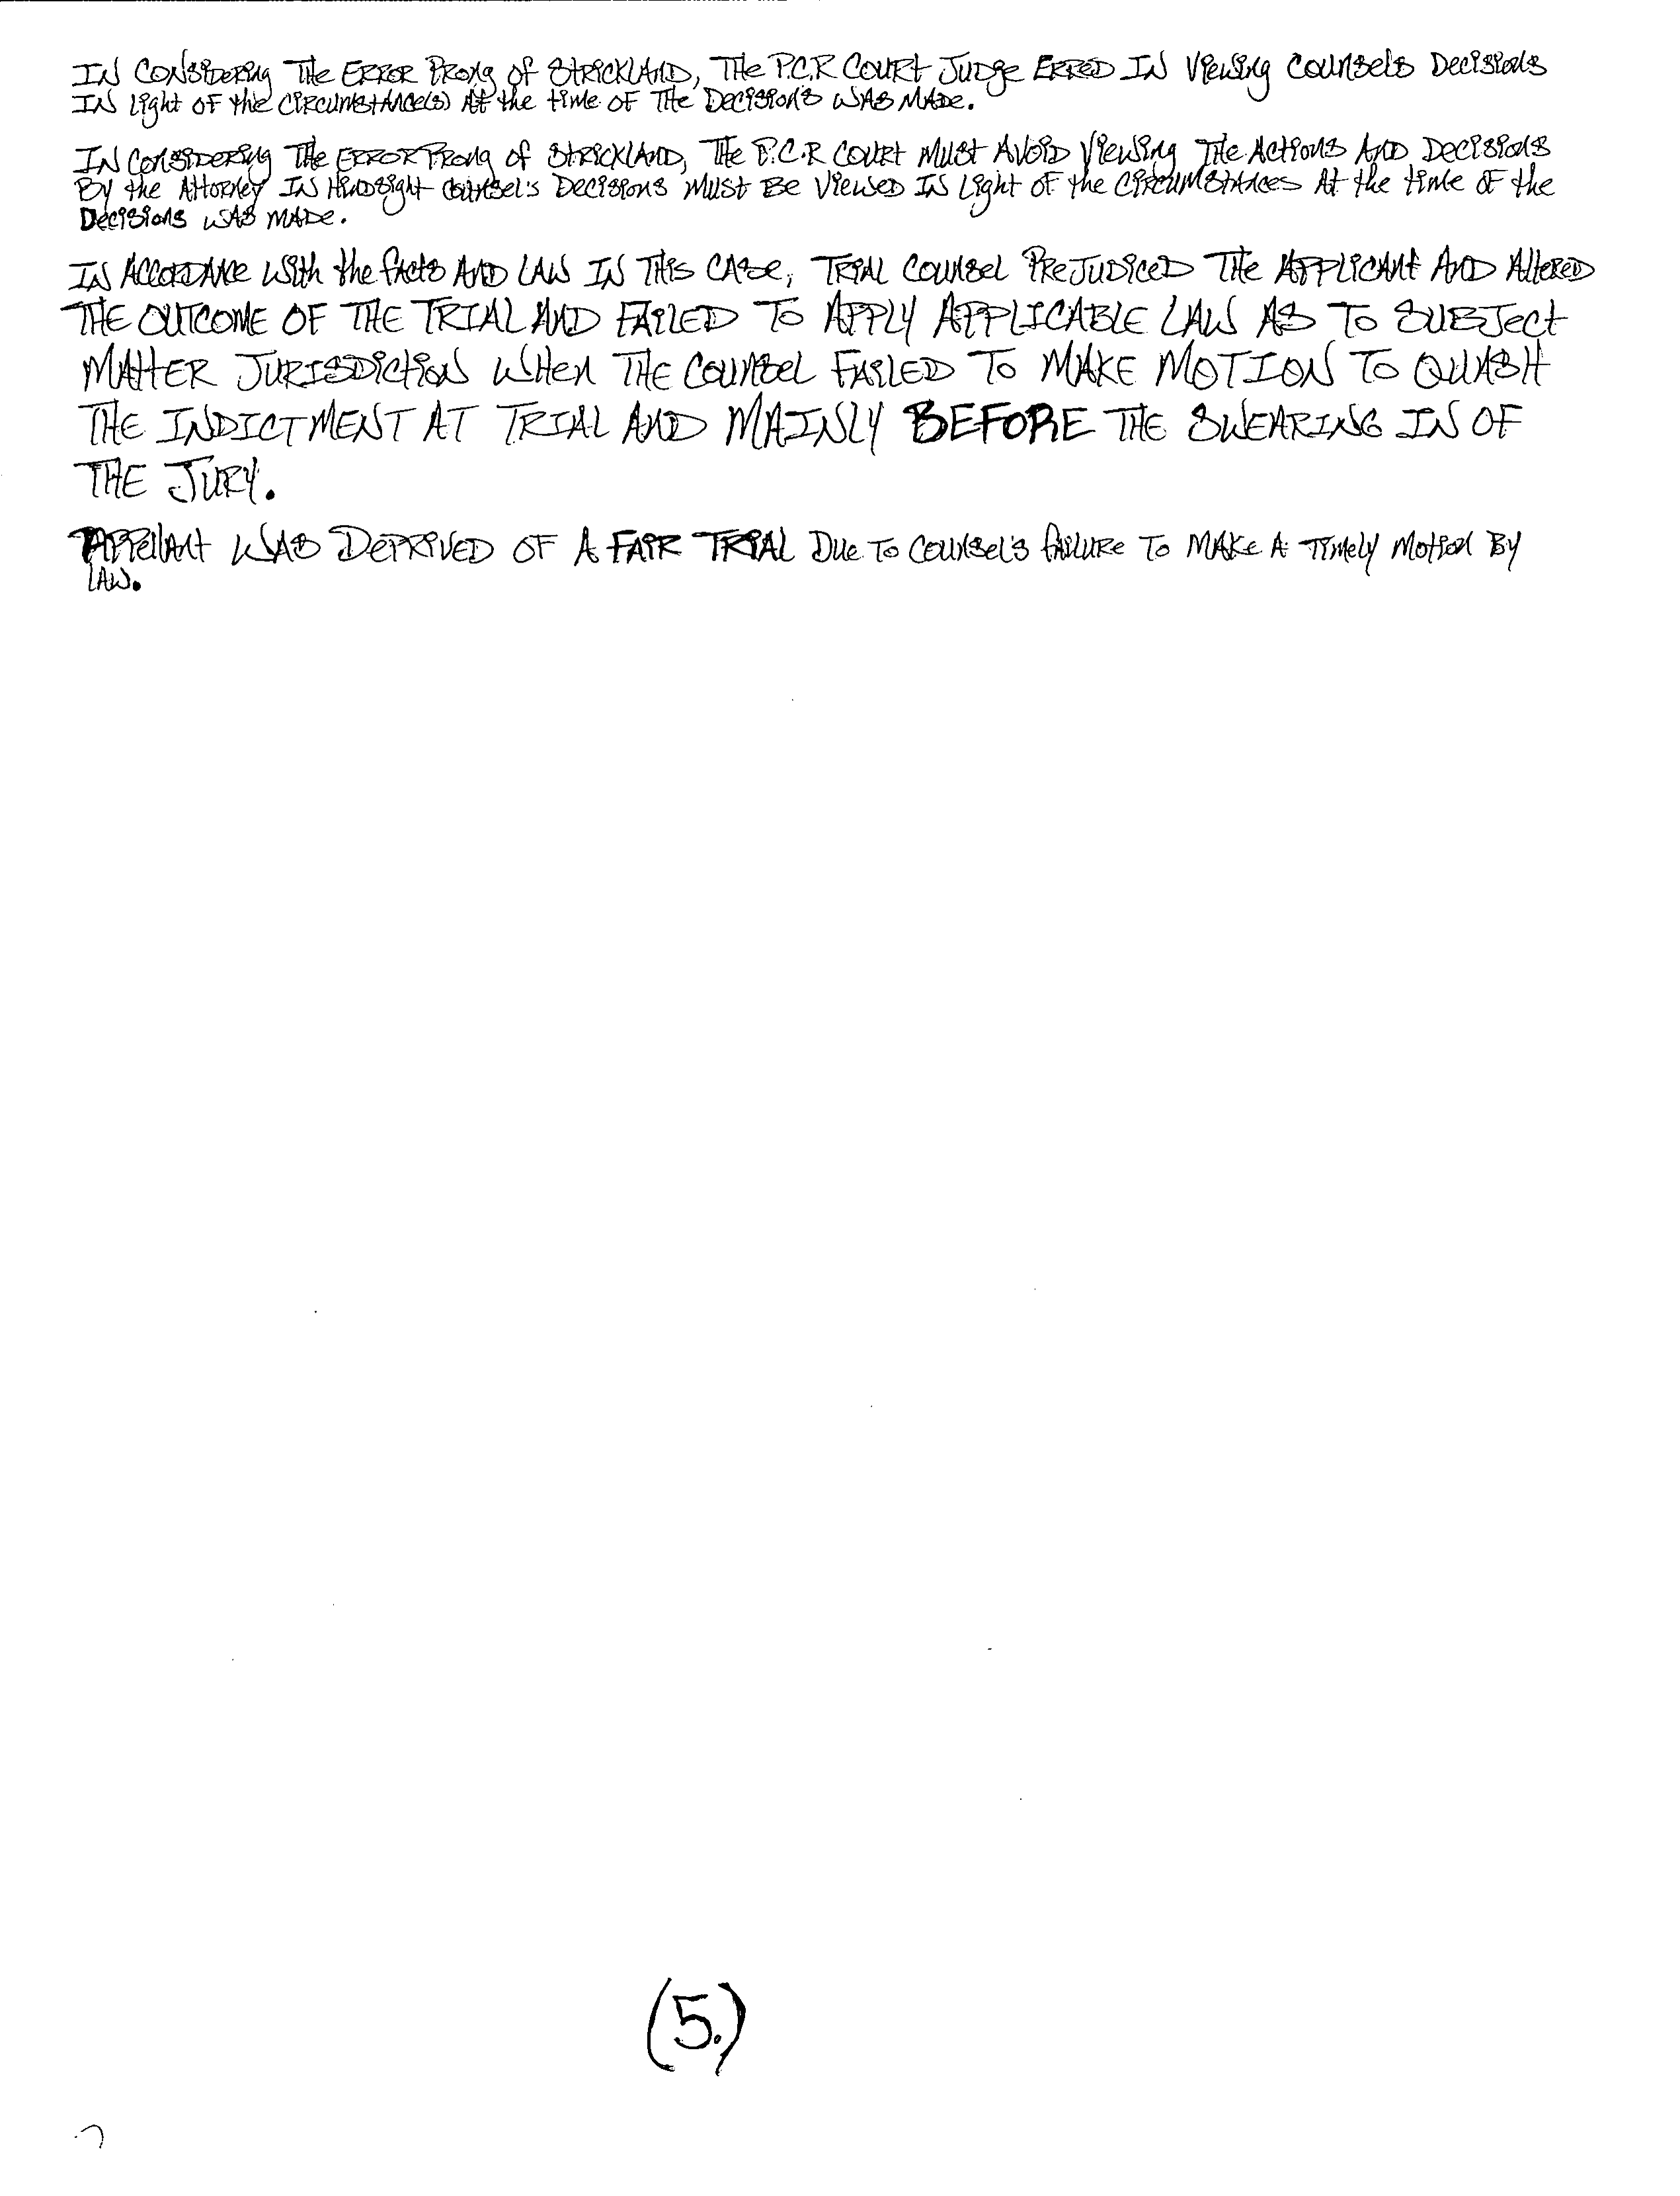 IN CONSIDERING THE ERROR PRONG OF STRICKLAND, THE P.C.R COURT JUDGE ERRED IN VIEWING COUNSELS DECISIONS
IN LIGHT OF THE CIRCUMSTANCE(S) AT THE TIME OF THE DECISIONS WAS MADE.
IN CONSIDERING THE ERROR PRONG OF STRICKLAND, THE P.C.R COURT MUST AVOID VIEWING THE ACTIONS AND DECISIONS
BY THE ATTORNEY IN HINDSIGHT COUNSEL'S DECISIONS MUST BE VIEWED IN LIGHT OF THE CIRCUMSTANCES AT THE TIME OF THE
DECISIONS WAS MADE.
IN ACCORDANCE WITH THE FACTS AND LAW IN THIS CASE, TRIAL COUNSEL PREJUDICED THE APPLICANT AND ALTERED
THE OUTCOME OF THE TRIAL AND FAILED TO APPLY APPLICABLE LAW AS TO SUBJECT
MATTER JURISDICTION WHEN THE COUNSEL FAILED TO MAKE MOTION TO QUASH
THE INDICTMENT AT TRIAL AND MAINLY BEFORE THE SWEARING IN OF
THE JURY.
APPELLANT WAS DEPRIVED OF A FAIR TRIAL DUE TO COUNSEL'S FAILURE TO MAKE A TIMELY MOTION BY
LAW.
(5.)